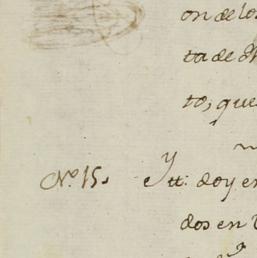 on de los
ta de
to, que
N.º 15. Ytt: doy en
dos en